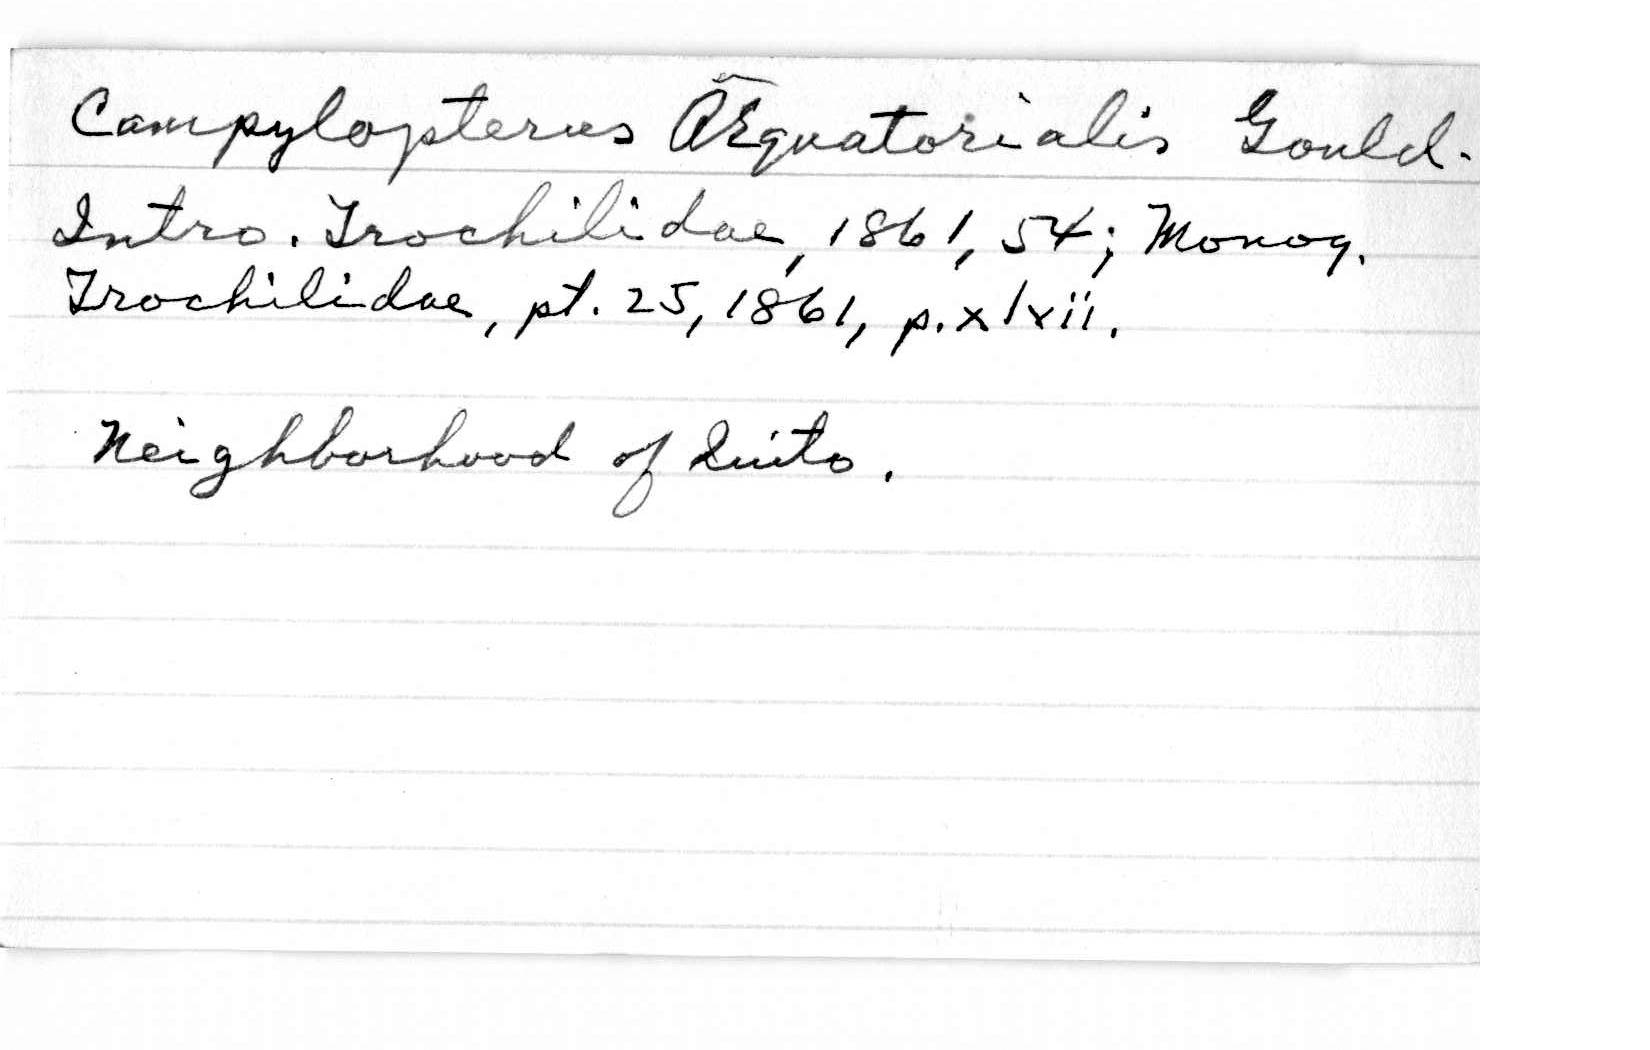 Campylopterus Æquatorialis Gould.
Intro. Trochilidae, 1861, 54; Monog.
Trochilidae, pt. 25, 1861, p. xlxii.
Neighborhood of Quito.